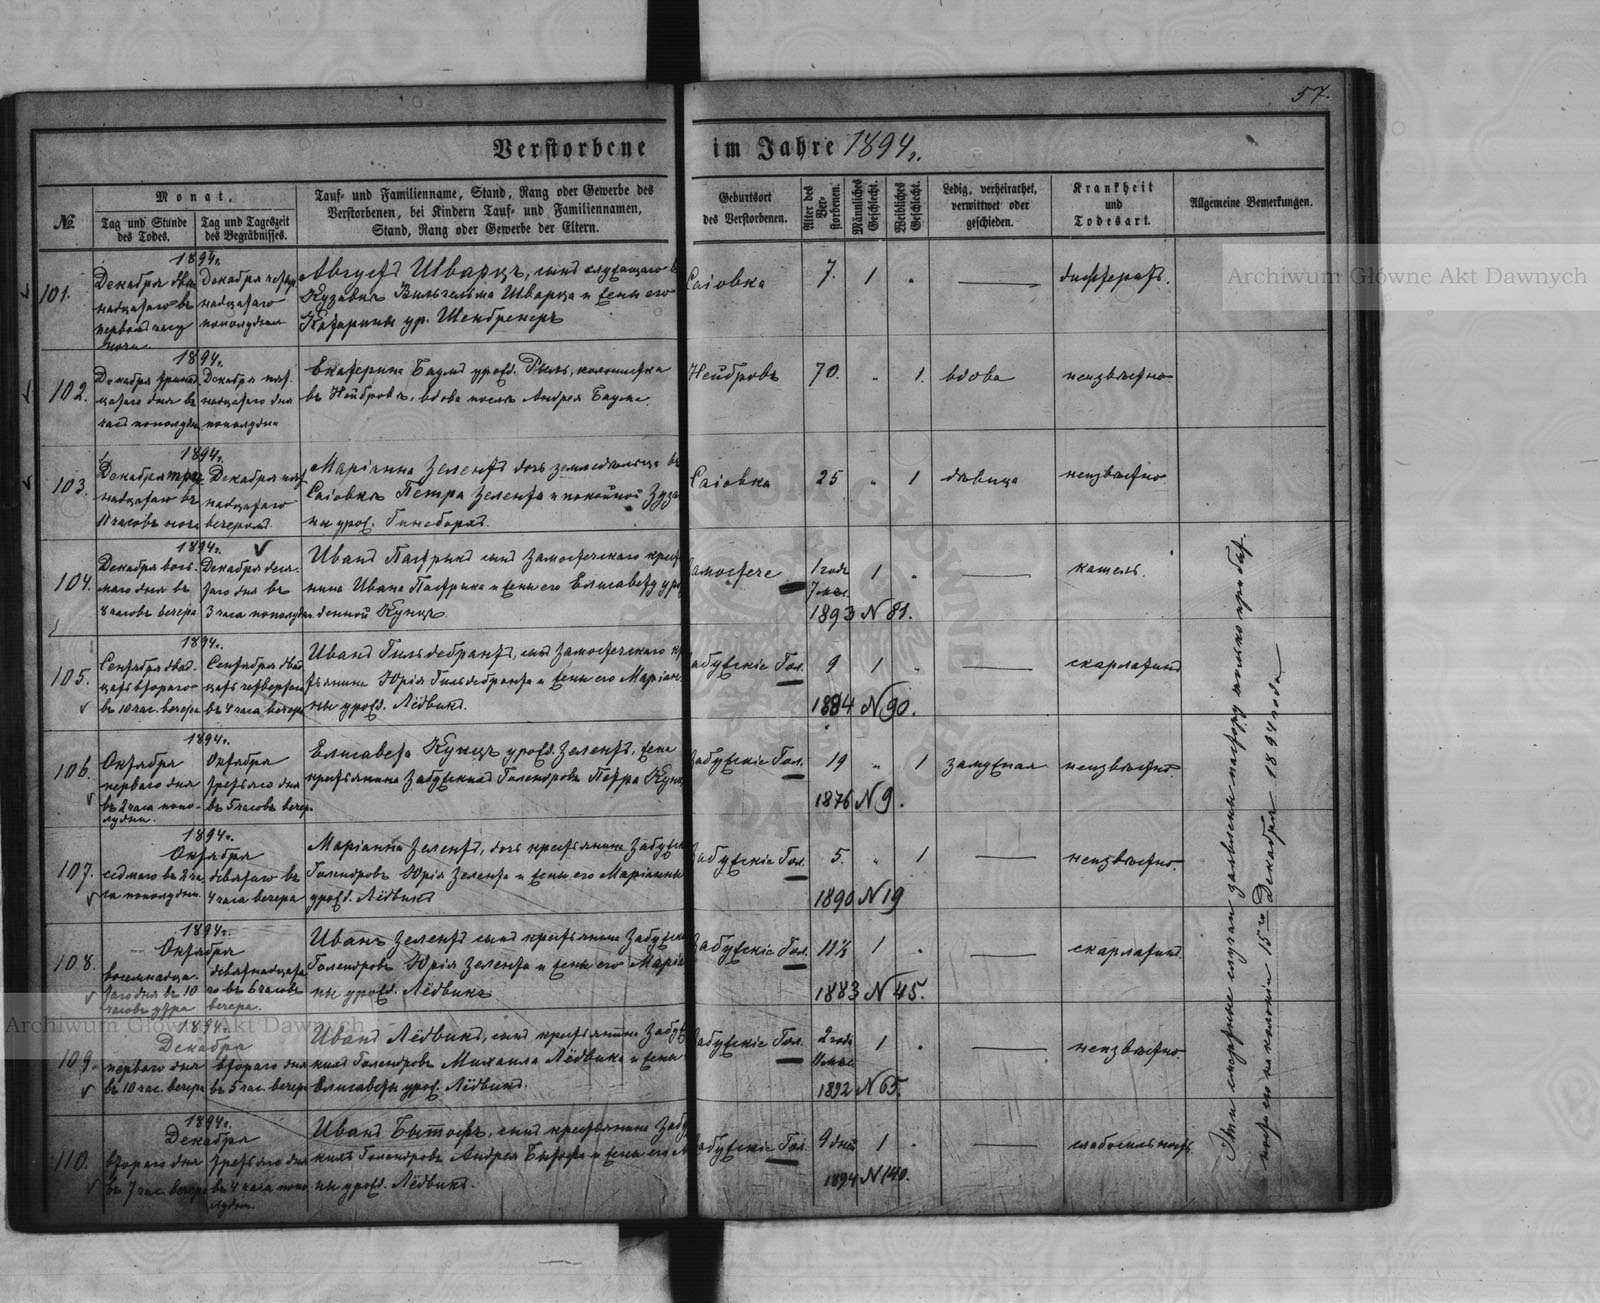 57.
Verstorbene im Jahre 1894 г.
№.
Monat.
Tag und Stunde des Todes.
Tag und Tageszeit des Begräbnisses.
Tauf- und Familienname, Stand, Rang oder Gewerbe des
Verstorbenen, bei Kindern Tauf- und Familiennamen,
Stand, Rang oder Gewerbe der Eltern.
Geburtsort
des Verstorbenen.
Alter des Ver-
storbenen.
Männliches
Geschlecht.
Weibliches
Geschlecht.
Ledig, verheirathet,
verwittwet oder
geschieden.
Krankheit
und
Todesart.
Allgemeine Bemerkungen.
101.
1894 г.
Декабря две
надцатаго въ
первомъ часу
ночи
Декабря
надцатаго
пополудни
Августъ Шварцъ, сынъ служащаго въ
Вильгельма Шварца и жены его
Катарины ур.
Саіовка
7. 1 "
102.
1894 г.
Декабря тринад
цатаго дня въ
часъ пополудни
Декабря пят
надцатаго дня
пополудни
Екатерина Баумъ урожд. колонистка
въ Нейбровъ, вдова послѣ Андрея Баума.
Нейбровъ
70. " 1.
вдова
неизвѣстно.
103.
1894 г.
Декабря три
надцатаго въ
11 часовъ ночи
Декабря пят
надцатаго
вечеромъ
Маріанна Зелентъ дочь земледѣльца въ
Саіовкѣ Петра Зелента и покойной Зуза
ны урож.
Саіовка
25 " 1
дѣвица
неизвѣстно
104.
1894 г.
Декабря вось
маго дня въ
8 часовъ вечера
Декабря деся-
таго дня въ
3 часа пополудни
Иванъ Пастрыкъ сынъ Замостечскаго крест
нина Ивана Пастрика и жены его Елисаветы уро
жденной Кунцъ.
амостече
1 годъ
7 мѣс. 1 "
1893 N 81.
кашель.
105.
1894 г.
Сентября двад-
цать втораго
въ 10 час. вечера
Сентября двад
цать четвертаго
въ 4 часа вечера
Иванъ Гильдебрантъ, сынъ Замостечскаго кре
стьянина Юрія Гильдебранта и жены его Маріан
ны урожд. Лёдвикъ.
абужскіе Гол.
9 1 "
1884 N 90.
скарлатина
106.
1894 г.
Октября
перваго дня
въ 2 часа попо-
лудни
Октября
третьяго дня
въ 5 часовъ вечер.
Елисавета Кунцъ урожд. Зелентъ, жена
крестьянина Забужскихъ Голендровъ Петра Кунц
абужскіе Гол.
19 " 1
1876 N 9.
замужная
неизвѣстно.
107.
1894 г.
Октября
седмаго въ 2 ча
са пополудни
девятаго въ
4 часа вечера
Маріанна Зелентъ, дочь крестьянина Забужск
Голендровъ Юрія Зелента и жены его Маріанны
урожд. Лёдвикъ
абужскіе Гол.
5. " 1
1890 N 19
неизвѣстно.
108.
1894 г.
Октября
восемнадца-
таго дня въ 10
часовъ утра
девятнадцата
го въ 6 часовъ
вечера.
Иванъ Зелентъ сынъ крестьянина Забужск
Голендровъ Юрія Зелента и жены его Маріа
ны урожд. Лёдвикъ
абужскіе Гол.
11½ 1 "
1883 N 45.
скарлатина.
109.
1894 г.
Декабря
перваго дня
въ 10 час. вечера
втораго дня
въ 5 час. вечера
Иванъ Лёдвикъ, сынъ крестьянина Забуж
кихъ Голендровъ Михаила Лёдвика и жены
Елисаветы урож. Лёдвикъ.
абужскіе Гол.
2 года
11 мѣс 1 "
1892 N 65.
неизвѣстно
110.
1894 г.
Декабря
втораго дня
въ 7 час. вечера
третьяго дня
въ 4 часа попо
лудни.
Иванъ Бытофъ, сынъ крестьянина Забу
кихъ Голендровъ Андрея Бытофа и жены его М
ны урожд. Лёдвикъ.
абужскіе Гол.
9 дней 1 "
1894 N 140.
слабосильность
Эти смертные случаи заявлены пастору только при
его на колоніи 15го Декабря 1894 года
Archiwum Główne Akt Dawnych
Archiwum Główne Akt Dawnych